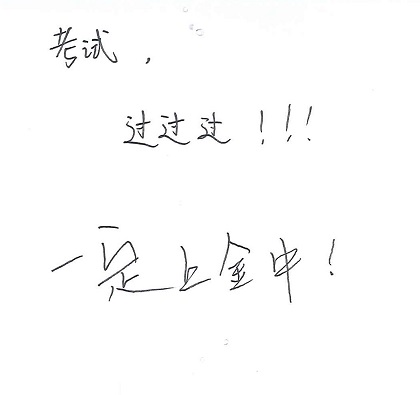 考试，
过过过！！！
一定上金中！